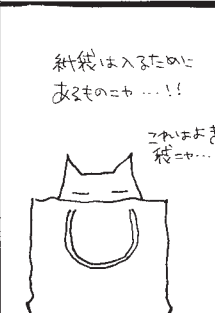 紙袋は入るために
あるものニャ…!!
これはよき
袋ニャ…